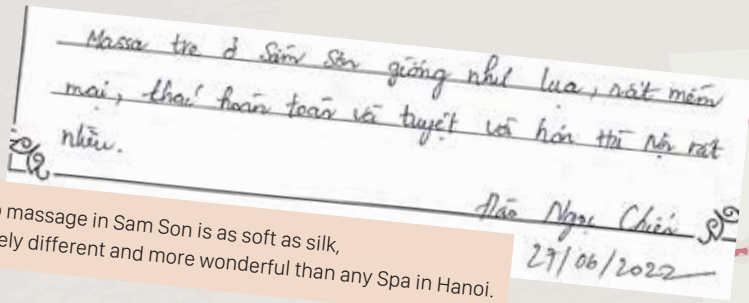 Massa tre ở Sầm Sơn giống như lụa, rất mềm
mại, thoải hoàn toàn và tuyệt vời hơn Hà Nội rất
nhiều.
Đào Ngọc Chiến
29/06/2022
massage in Sam Son is as soft as silk,
ely different and more wonderful than any Spa in Hanoi.